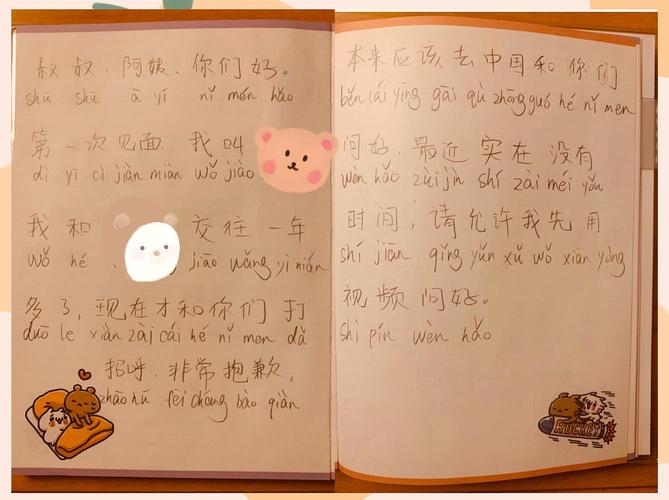 叔叔、阿姨、你们好。
shū shū ā yí nǐ mén hǎo
第一次见面、我叫
dì yī cì jiàn miàn wǒ jiào
我和 交往一年
wǒ hé jiāo wǎng yì nián
多了，现在才和你们打
duō le xiàn zài cái hé nǐ men dǎ
招呼、非常抱歉，
zhāo hū fēi cháng bào qiàn
本来应该去中国和你们
běn lái yīng gāi qù zhōng guó hé nǐ men
问好、最近实在没有
wèn hǎo zùi jìn shí zài méi yǒu
时间，请允许我先用
shí jiān qǐng yǔn xǔ wǒ xiān yòng
视频问好。
shì pín wèn hǎo
ROCKET